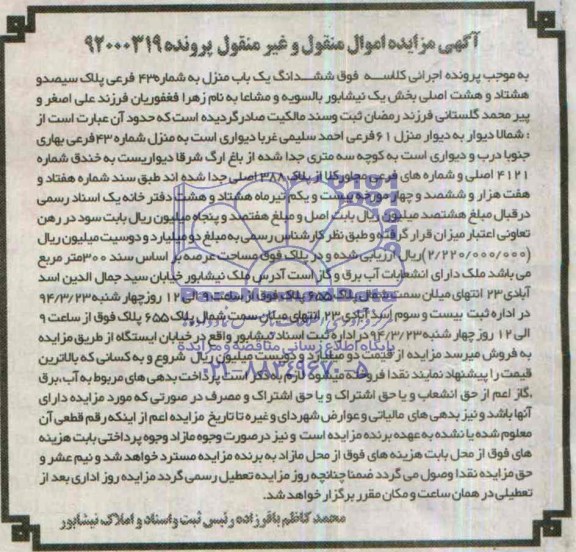 آگهی مزایده اموال منقول و غیر منقول پرونده ۹۲۰۰۰۳۱۹
به موجب پرونده اجرائی کلاسه فوق ششدانگ یک باب منزل به شماره ۴۳ فرعی پلاک سیصدو
هشتاد و هشت اصلی بخش یک نیشابور بالسویه و مشاعا به نام زهرا فغفوریان فرزند علی اصغر و
پیر محمد گلستانی فرزند رمضان ثبت وسند مالکیت صادر گردیده است که حدود آن عبارت است از
: شمالا دیوار به دیوار منزل ۶۱ فرعی احمد سلیمی غربا دیواری است به منزل شماره ۴۳ فرعی بهاری
جنوبا درب و دیواری است به کوچه سه متری جدا شده از باغ ارگ شرقا دیواریست به خندق شماره
۴۱۲۱ اصلی و شماره های فرعی مجاور کلا از پلاک ۳۸۸ اصلی جدا شده اند طبق سند شماره هفتاد و
هفت هزار و ششصد و چهار مورخه بیست و یکم تیرماه هشتاد و هشت دفتر خانه یک اسناد رسمی
درقبال مبلغ هشتصد میلیون ریال بابت اصل و مبلغ هفتصد و پنجاه میلیون ریال بابت سود در رهن
تعاونی اعتبار میزان قرار گرفته و طبق نظر کارشناس رسمی به مبلغ دو میلیارد و دوسیت میلیون ریال
(۲/۲۲۰/۰۰۰/۰۰۰) ریال ارزیابی شده و در پلاک فوق مساحت عرصه بر اساس سند ۳۰۰ متر مربع
می باشد ملک دارای انشعابات آب برق و گاز است آدرس ملک نیشابور خیابان سید جمال الدین اسد
آبادی ۲۳ انتهای میلان سمت شمال پلاک ۶۵۵ پلاک فوق از ساعت ۹ الی ۱۲ روز چهار شنبه ۹۴/۳/۲۳
در اداره ثبت بیست و سوم اسد آبادی ۲۳ انتهای میلان سمت شمال پلاک ۶۵۵ پلاک فوق از ساعت ۹
الی ۱۲ روز چهار شنبه ۹۴/۳/۲۳ در اداره ثبت اسناد نیشابور واقع در خیابان ایستگاه از طریق مزایده
به فروش میرسد مزایده از قیمت دو میلیارد و دویست میلیون ریال شروع و به کسانی که بالاترین
قیمت را پیشنهاد نمایند نقدا فروخته میشود لازم به ذکر است پرداخت بدهی های مربوط به آب، برق
،گاز اعم از حق انشعاب و یا حق اشتراک و یا حق اشتراک و مصرف در صورتی که مورد مزایده دارای
آنها باشد و نیز بدهی های مالیاتی و عوارض شهرداری و غیره تا تاریخ مزایده اعم از اینکه رقم قطعی آن
معلوم شده یا نشده به عهده برنده مزایده است و نیز در صورت وجوه مازاد وجوه پرداختی بابت هزینه
های فوق از محل بابت هزینه های فوق از محل مازاد به برنده مزایده مسترد خواهد شد و نیم عشر و
حق مزایده نقدا وصول می گردد ضمنا چنانچه روز مزایده تعطیل رسمی گردد مزایده روز اداری بعد از
تعطیلی در همان ساعت و مکان مقرر برگزار خواهد شد.
محمد کاظم باقرزاده رئیس ثبت و اسناد و املاک نیشابور
پایگاه اطلاع رسانی مناقصه و مزایده
۰۲۱-۸۸۳۴۹۶۷۰-۵